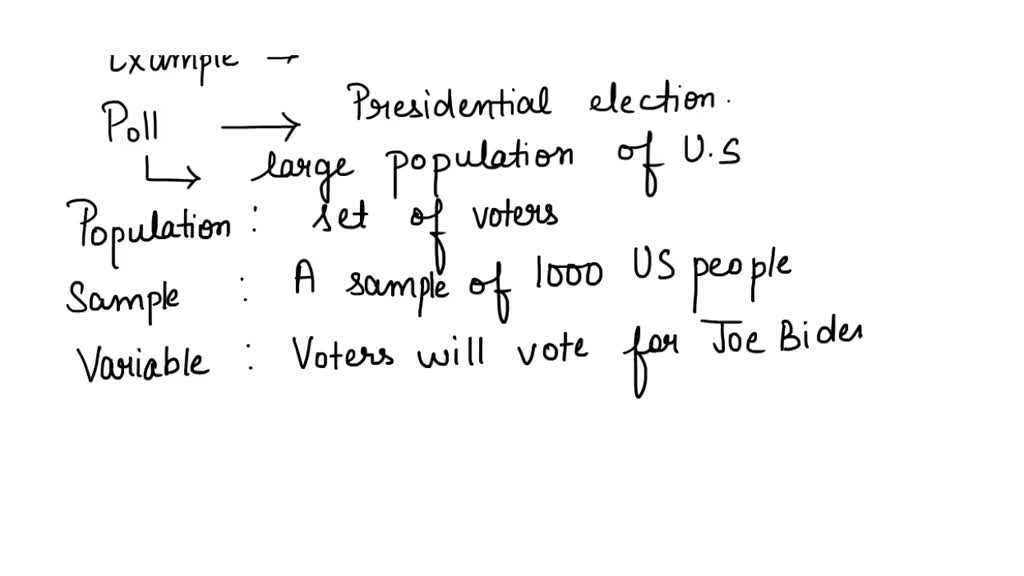 Example →
Poll → Presidential election.
↳ large population of U.S
Population : set of voters
Sample : A sample of 1000 US people
Variable : Voters will vote for Joe Biden